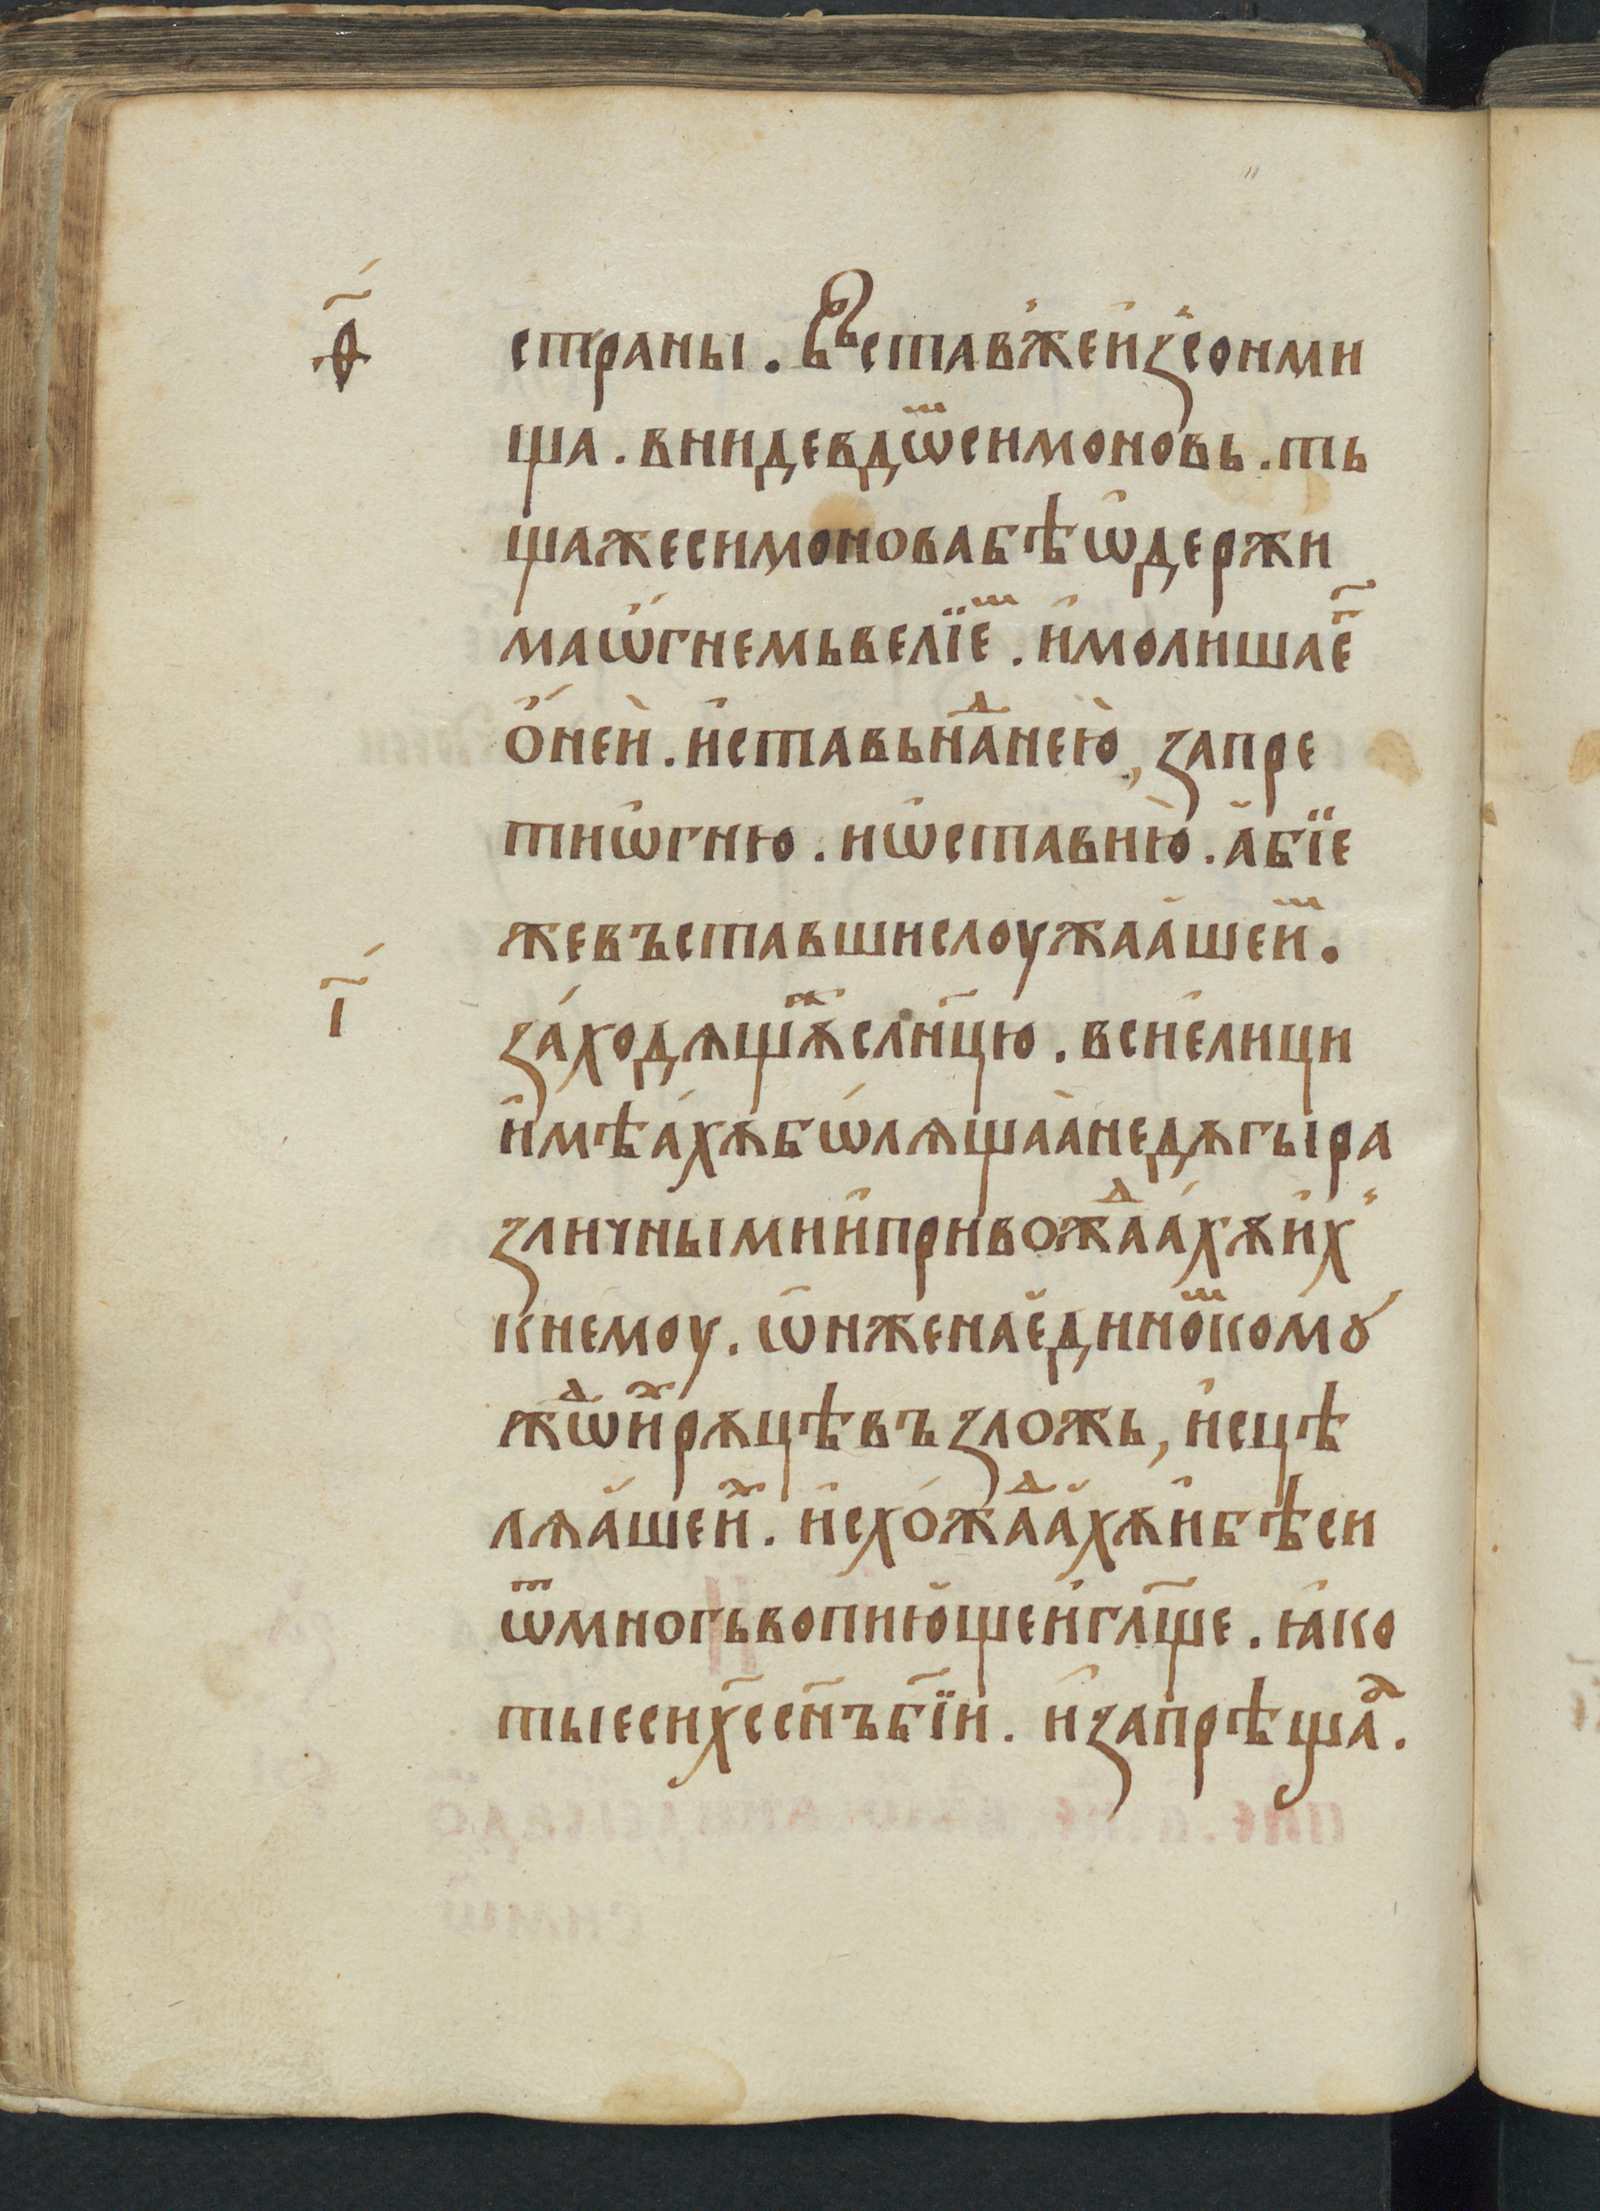 ѳ҃ страны. Въставже́и҆зсонми
ща. вниде в дѡⷨ симоновь. ть
щаже симонова бѣ ѡ҆держи
ма ѡ҆́гнемь велїеⷨ. и҆ молиша е҆г҃
ѡ҆́ нeи̇̀. и҆ ставь наⷣ нею̀, запре
ти ѡ҆гню. и ѡ҆стави ю̀. а҆бїе
же въставши слоужаа́ше и҆ⷨ.
і҃ За́ходѧщꙋⷤ сл҃нцю. вси е҆лици
и҆мѣа́хѫ бѡ́лѧщаѧ недѫгы ра
зличными и҆ привожⷣаа́хѫ и҆́х
к немоу. ѡ҆н же на е҆динѡⷨ комꙋ́
жⷣѡ и҆ⷯ рѫцѣ възложь, и҆сцѣ
лѧа́ше и҆ⷯ. и҆схо́жⷣаа҆хѫ и҆ бѣси
ѿ многъ вопию҆ще и҆ гл҃ще. ꙗ҆ко
ты еси х҃с сн҃ъ бж҃їи. и҆ запрѣщаⷶ.